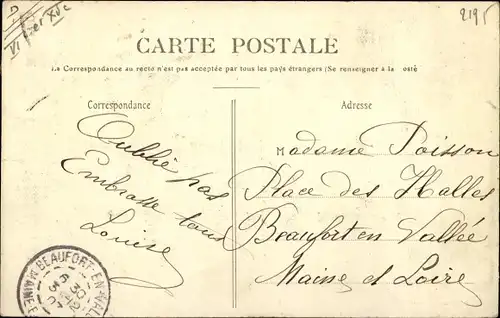 2195
CARTE POSTALE
La Correspondance au recto n'est pas acceptée par tous les pays étrangers (Se renseigner à la oste
Correspondance
Adresse
Oublie pas
Embrasse tous
Louise
Madame Poisson
Place des Halles
Beaufort en Vallée
Maine et Loire
BEAUFORT-EN-VALLEE
MAINE